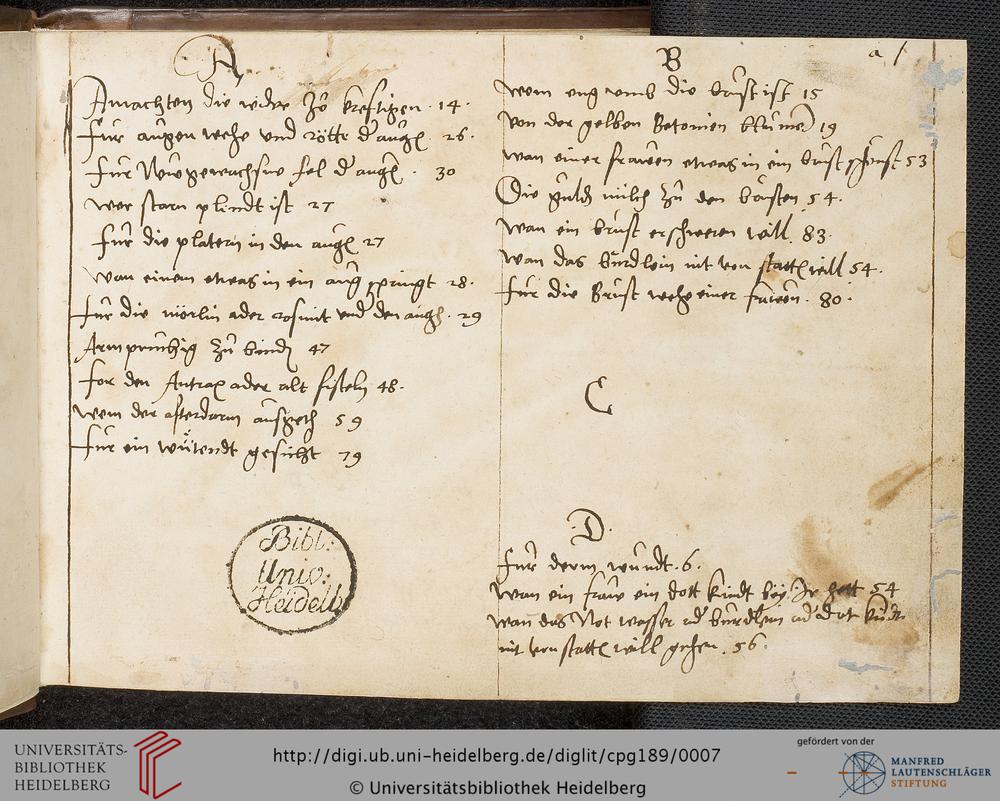 A
Amachten die wider zů kreftigen . 14 .
Fur augen wehe und rötte d' augē . 26 .
Fur Nüwgewachsne fel d' augē . 30
wer starn plindt ist 27
Fur die platern in den augē 27
wan einem etwas in ein aug springt 28 .
Fur die mörlin ader und den augē . 29
Armprüchig zů bindē 47
for den Antrax ader alt fisteln 48 .
wem der affterdarm ausgeth 59
Fur ein wütendt gesicht 79
Bibl:
Univ:
Heidelb
B
a 1
wem eng umb die brust ist 15
Von der gelben Betonien blumē 19
wan einer frawen etwas in ein brust 53
Die milch zů den brüsten 54 .
Wan ein brust erschweren will . 83 .
Wan das bürdlein nit von stattē will 54 .
Fur die Brust wehe einer frawen . 80 .
C
D
Fur derm wundt . 6 .
Wan ein fraw ein dott kindt bey Jr hett 54
wan das Not wasser ad' bürdlein ad' dot kindt
nit von stattē will gehen . 56 .
UNIVERSITÄTS-
BIBLIOTHEK
HEIDELBERG
http://digi.ub.uni-heidelberg.de/diglit/cpg189/0007
© Universitätsbibliothek Heidelberg
gefördert von der
MANFRED
LAUTENSCHLÄGER
STIFTUNG